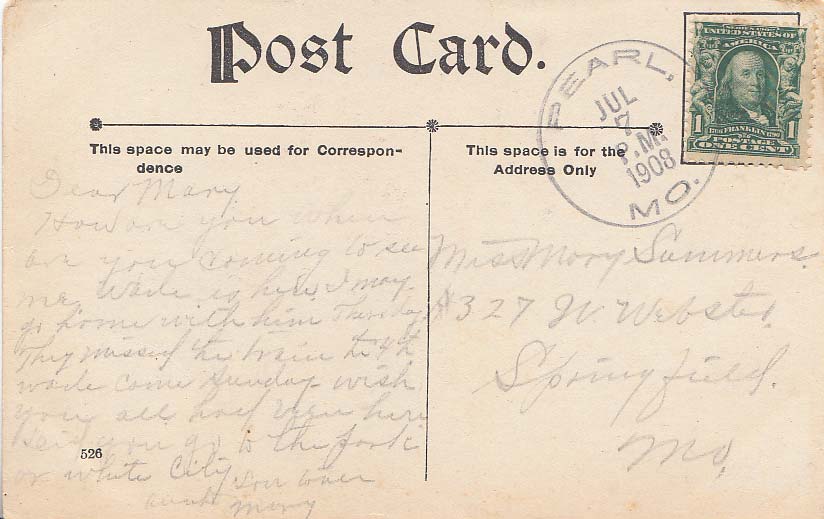 Post Card.
This space may be used for Correspon-
dence
This space is for the
Address Only
PEARL.
JUL
7
P.M.
1908
MO.
SERIES 1902
UNITED STATES OF
AMERICA
1 1
1706 FRANKLIN 1790
POSTAGE
ONE CENT
Dear Mary
How are you when
are you coming to see
me. Wade is here I may
go home with him Thursday
They missed the train the 4th
wade come Sunday wish
you all had been here
did you go to the park
or white City
Mary
526
Miss Mary Summers.
#327 W. Webster.
Springfield.
Mo.